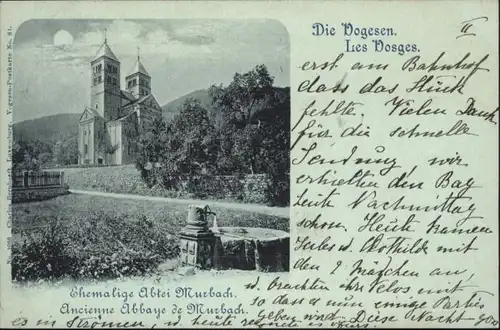 Die Vogesen.
Les Vosges.
II
erst am Bahnhof
dass das Stück
fehlte. Vielen Dank
für die schnelle
Sendung, wir
erhielten den Bag
heute Nachmittag
schon. Heute kamen
Jules u. Clothilde mit
den 2 Mädchen an,
u. brachten ihr Velos mit
so dass d nun einige Parties
geben wird. Diese Nacht
es in Strömen, u. heute regnete es
Ehemalige Abtei Murbach.
Ancienne Abbaye de Murbach.
Charles Bernhoeft, Luxemburg. Vogesen-Postkarte No. 81.